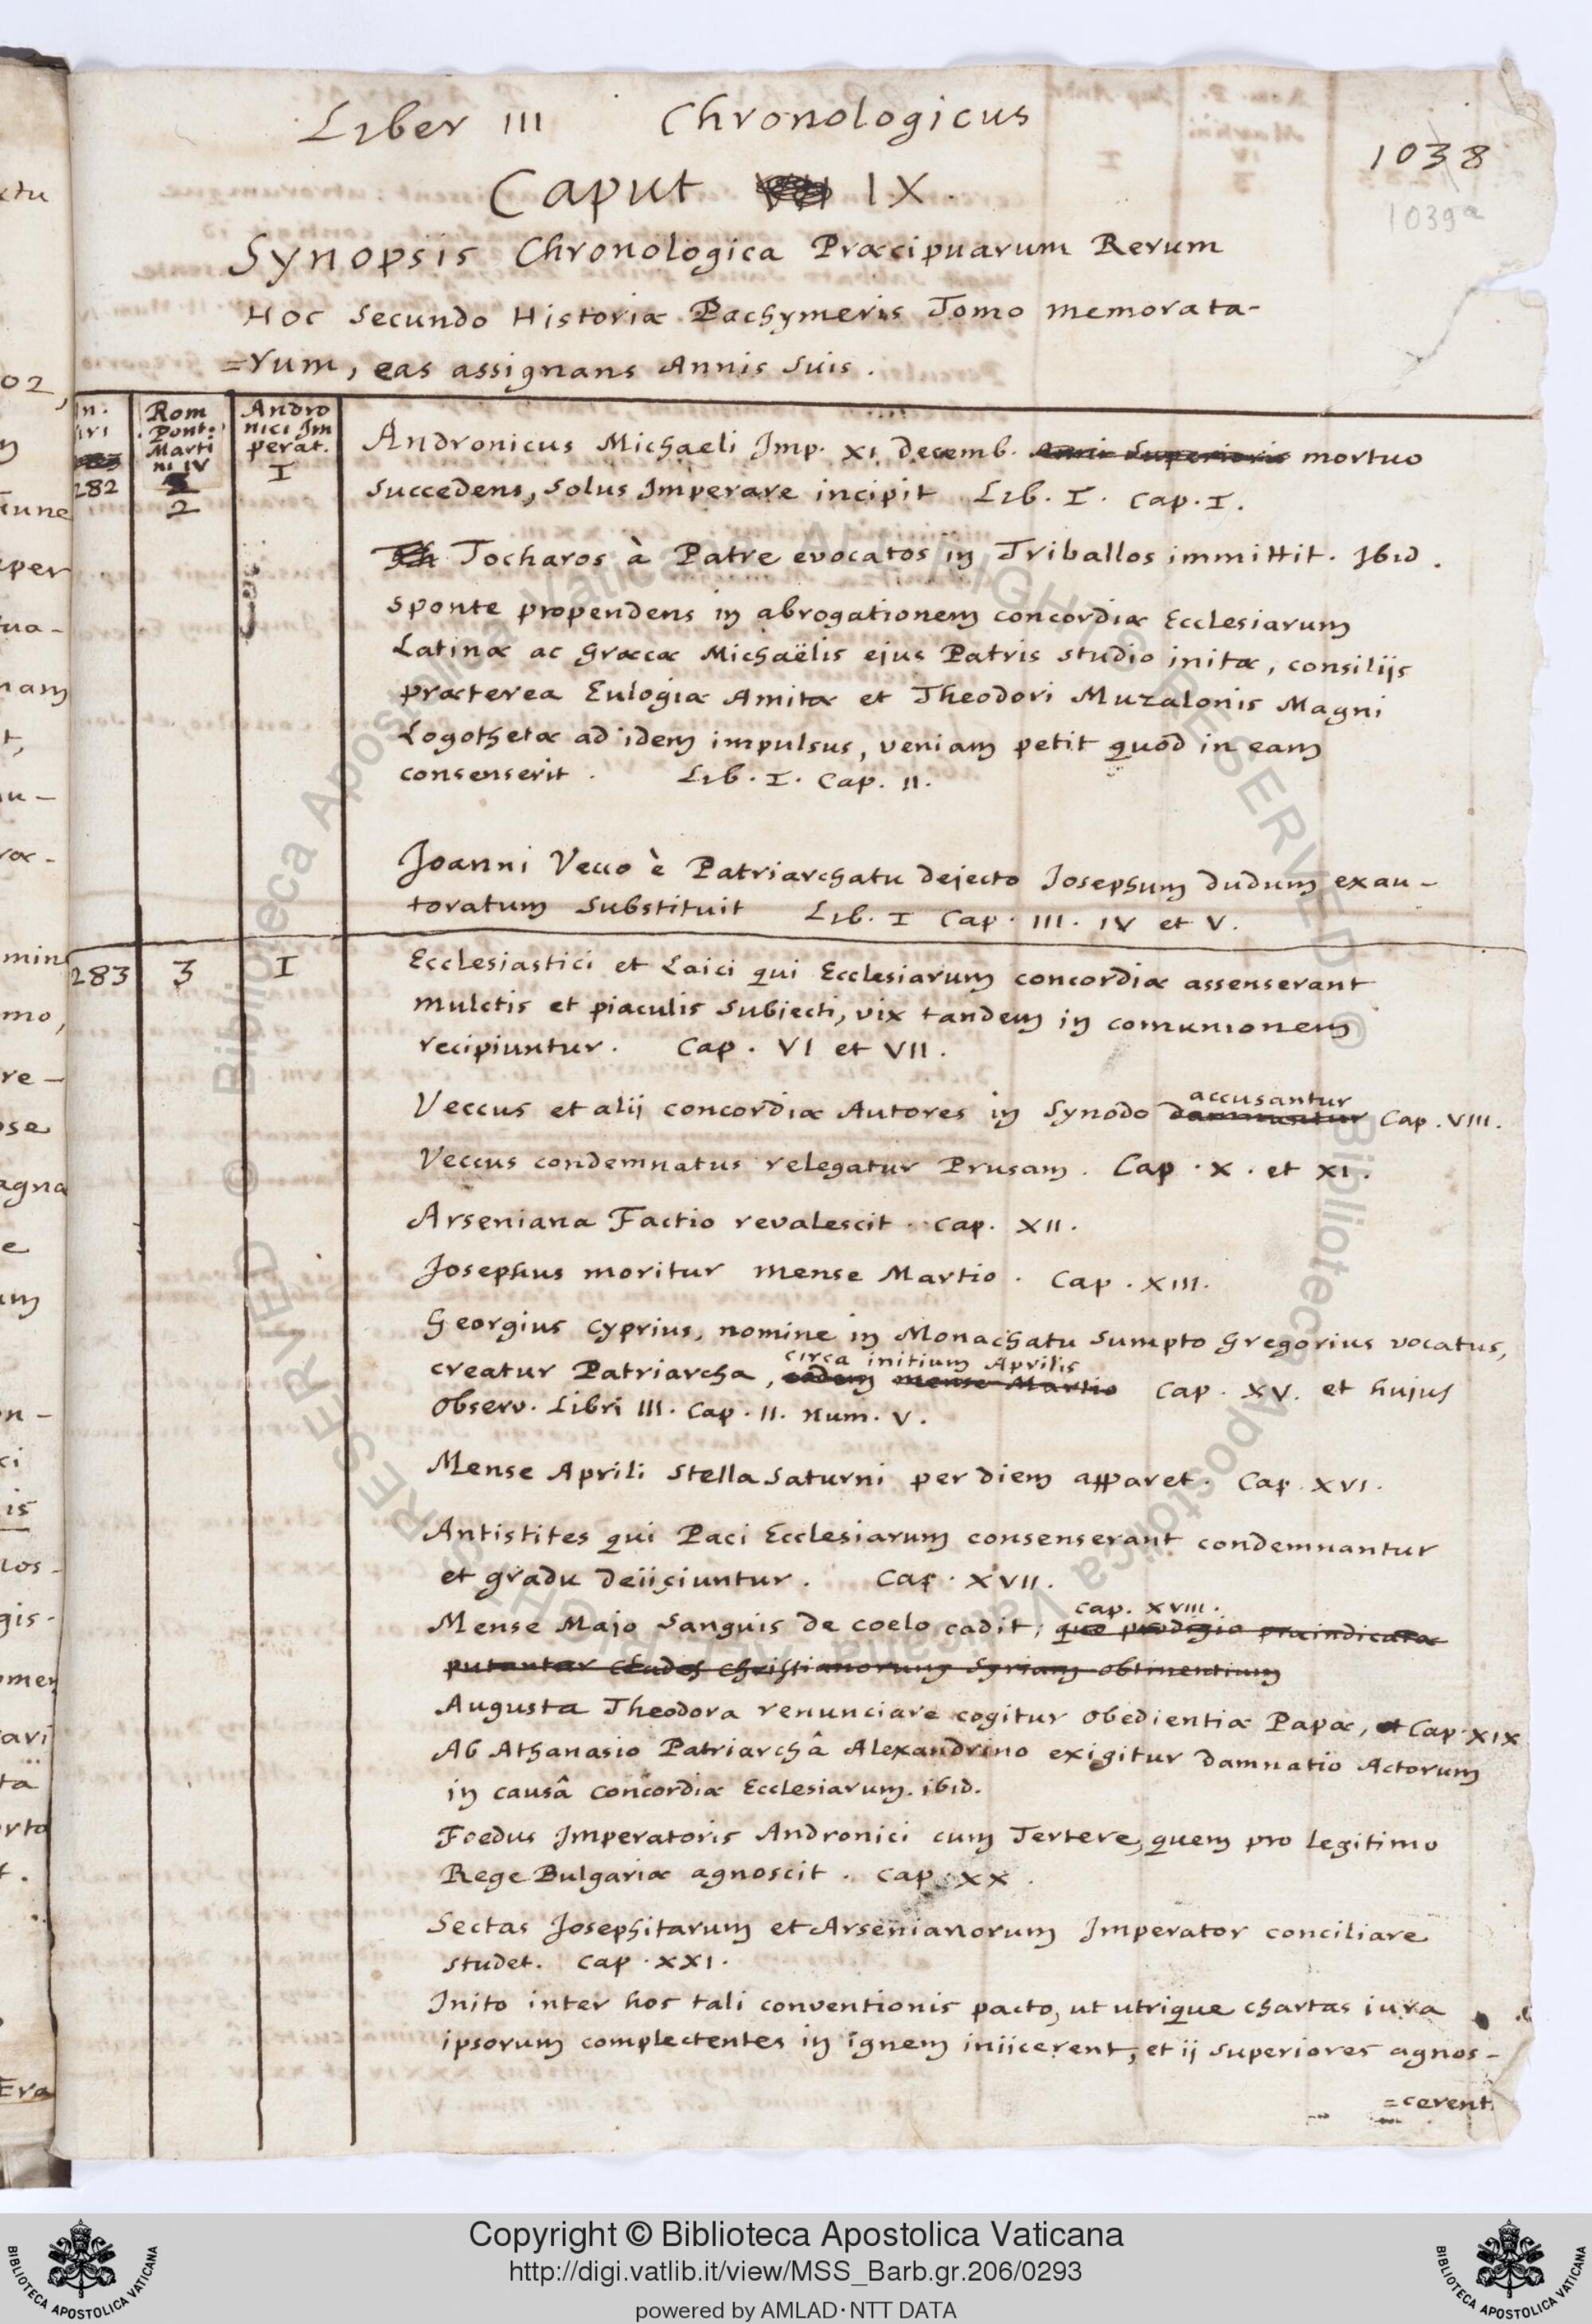 Liber III Chronologicus
1038
1039a
Caput IX.
Synopsis Chronologica Præcipuarum Rerum
Hoc secundo Historiæ Pachymeris Tomo memorata-
=rum, eas assignans Annis suis.
Rom Pont. Martini IV
2
Andronici Imperat.
I
282
Andronicus Michaeli Imp. XI decemb. anni superioris mortuo
succedens, solus Imperare incipit Lib. I. Cap. I.
Tocharos à Patre evocatos in Triballos immittit. Ibid.
sponte propendens in abrogationem concordiæ Ecclesiarum
Latinæ ac Græcæ Michaëlis ejus Patris studio initæ, consilijs
præterea Eulogiæ Amitæ et Theodori Muzalonis Magni
Logothetæ ad idem impulsus, veniam petit quod in eam
consenserit. Lib. I. Cap. II.
Joanni Vecco è Patriarchatu dejecto Josephum dudum exau-
toratum substituit Lib. I Cap. III. IV et V.
283 3 I
Ecclesiastici et Laici qui Ecclesiarum concordiæ assenserant
mulctis et piaculis subiecti, vix tandem in comunionem
recipiuntur. Cap. VI et VII.
accusantur
Veccus et alij concordiæ Autores in synodo damnantur Cap. VIII.
Veccus condemnatus relegatur Prusam. Cap. X. et XI.
Arseniana Factio revalescit. cap. XII.
Josephus moritur mense Martio. Cap. XIII.
Georgius Cyprius, nomine in Monachatu sumpto Gregorius vocatus,
circa initium Aprilis
creatur Patriarcha, eodem mense Martio Cap. XV. et hujus
observ. Libri III. Cap. II. num. V.
Mense Aprili stella Saturni per diem apparet. Cap. XVI.
Antistites qui Paci Ecclesiarum consenserant condemnantur
et gradu deiiciuntur. Cap. XVII.
cap. XVIII.
Mense Majo sanguis de coelo cadit, quo prodigio præindicata
putantur clades Christianorum Syriam obtinentium
Augusta Theodora renunciare cogitur obedientiæ Papæ, et Cap. XIX
Ab Athanasio Patriarchâ Alexandrino exigitur damnatio Actorum
in causâ concordiæ Ecclesiarum. ibid.
Foedus Imperatoris Andronici cum Tertere, quem pro legitimo
Rege Bulgariæ agnoscit. Cap. XX.
Sectas Josephitarum et Arsenianorum Imperator conciliare
studet. Cap. XXI.
Inito inter hos tali conventionis pacto, ut utrique chartas iura
ipsorum complectentes in ignem iniicerent, et ij superiores agnos-
=cerent
Copyright © Biblioteca Apostolica Vaticana
http://digi.vatlib.it/view/MSS_Barb.gr.206/0293
powered by AMLAD·NTT DATA
BIBLIOTECA APOSTOLICA VATICANA
BIBLIOTECA APOSTOLICA VATICANA